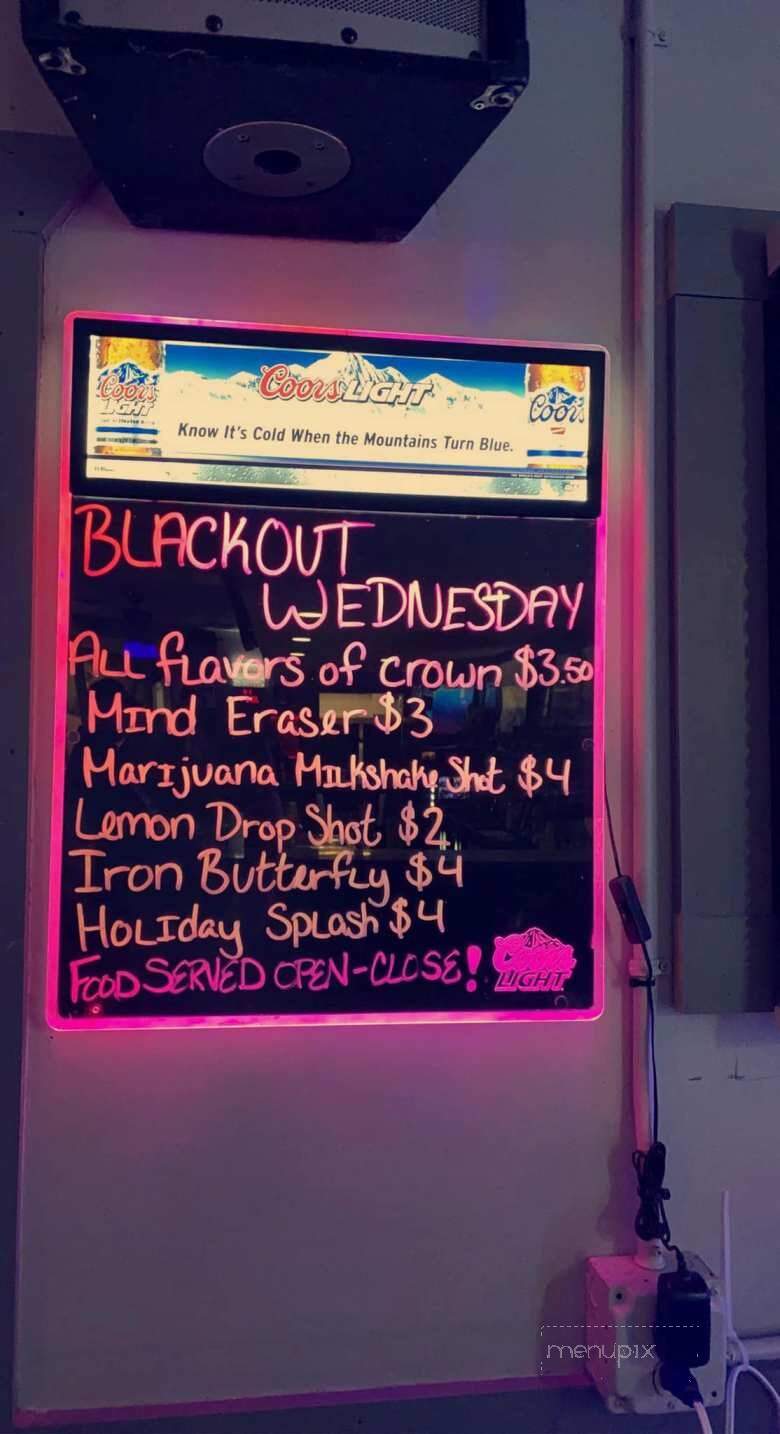 Coors LIGHT
Coors LIGHT
Coors
Know It's Cold When the Mountains Turn Blue.
BLACKOUT
WEDNESDAY
ALL fLavors of crown $3.50
MInd Eraser $3
MarIjuana MILkshake Shot $4
Lemon Drop Shot $2
Iron ButterfLy $4
HoLIday SpLash $4
FOOD SERVED OPEN-CLOSE!
Coors
LIGHT
menupix